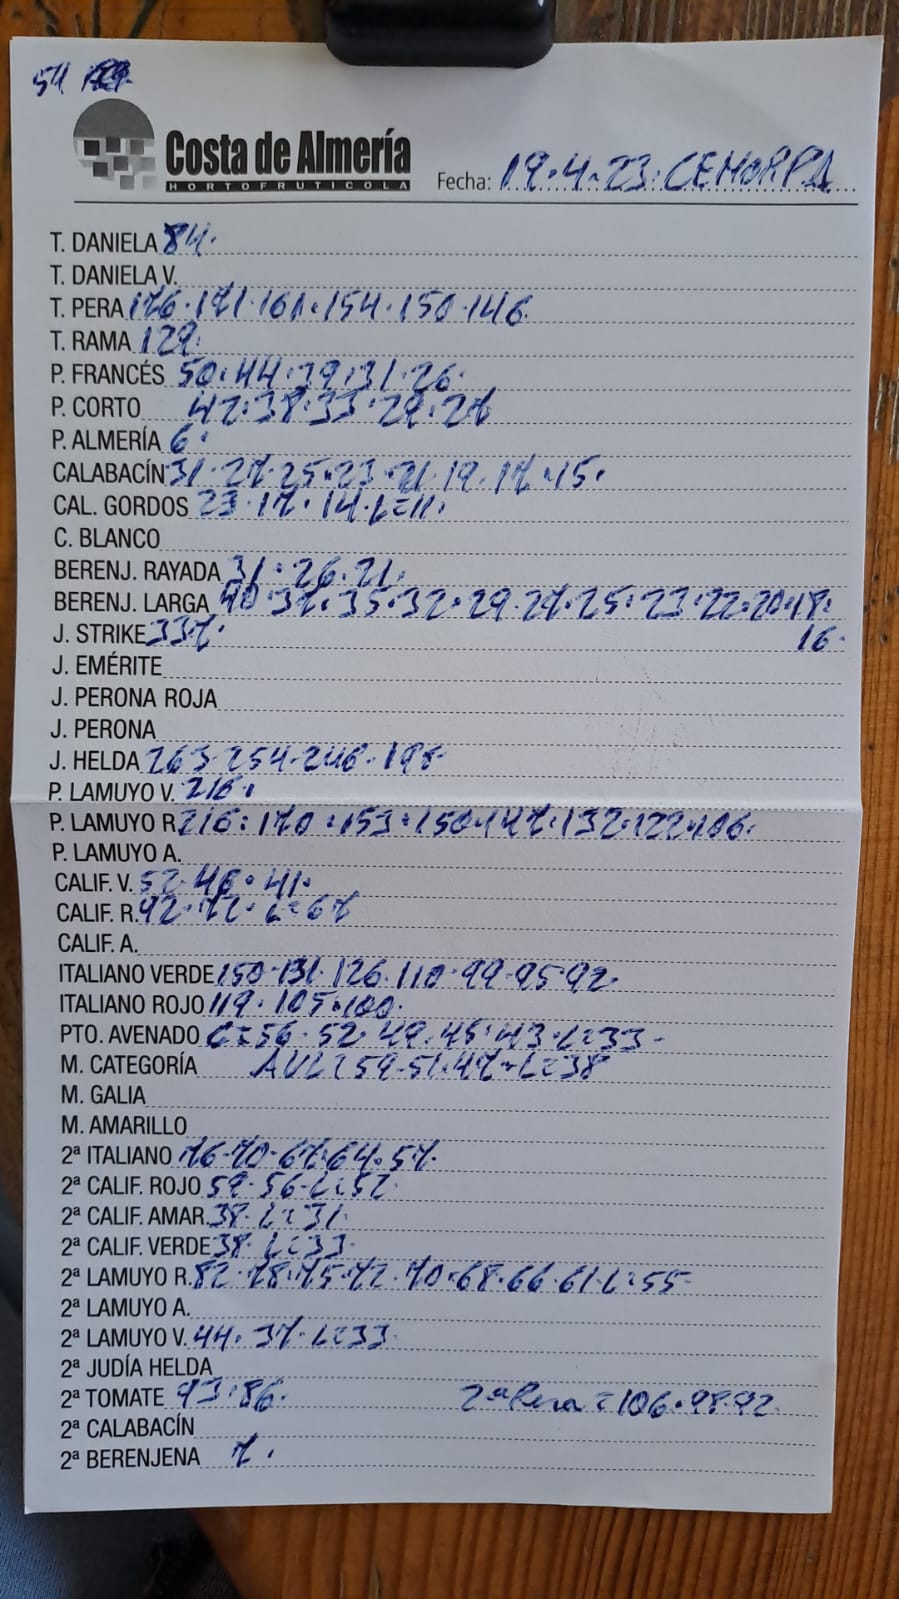 54
Costa de Almería
HORTOFRUTICOLA
Fecha: 19.4.23. CEHORPA
T. DANIELA 84.
T. DANIELA V.
T. PERA 176.171.161.154.150.146
T. RAMA 129.
P. FRANCÉS 50.44.39.31.26.
P. CORTO 42.38.33.29.27
P. ALMERÍA 6.
CALABACÍN 31.27.25.23.21.19.17.15.
CAL. GORDOS 23.17.14.L=11.
C. BLANCO
BERENJ. RAYADA 31.26.21.
BERENJ. LARGA 40.37.35.32.29.27.25.23.22.20.18.
J. STRIKE 337. 16.
J. EMÉRITE
J. PERONA ROJA
J. PERONA
J. HELDA 263.254.246.198.
P. LAMUYO V. 216.
P. LAMUYO R 216.170.153.150.147.132.122.106.
P. LAMUYO A.
CALIF. V. 52.46.41.
CALIF. R. 92.72.L=67
CALIF. A.
ITALIANO VERDE 150.131.126.110.99.95.92.
ITALIANO ROJO 119.105.100.
PTO. AVENADO C=56.52.49.45.43.L=33-
M. CATEGORÍA AVL=59.51.47.L=38
M. GALIA
M. AMARILLO
2ª ITALIANO 76.70.67.64.57.
2ª CALIF. ROJO 59.56.L=52.
2ª CALIF. AMAR. 38.L=31.
2ª CALIF. VERDE 38.L=33.
2ª LAMUYO R. 82.78.75.72.70.68.66.61.L=55-
2ª LAMUYO A.
2ª LAMUYO V. 44.37.L=33.
2ª JUDÍA HELDA
2ª TOMATE 93.86. 2ª Pera=106.98.92.
2ª CALABACÍN
2ª BERENJENA 7.